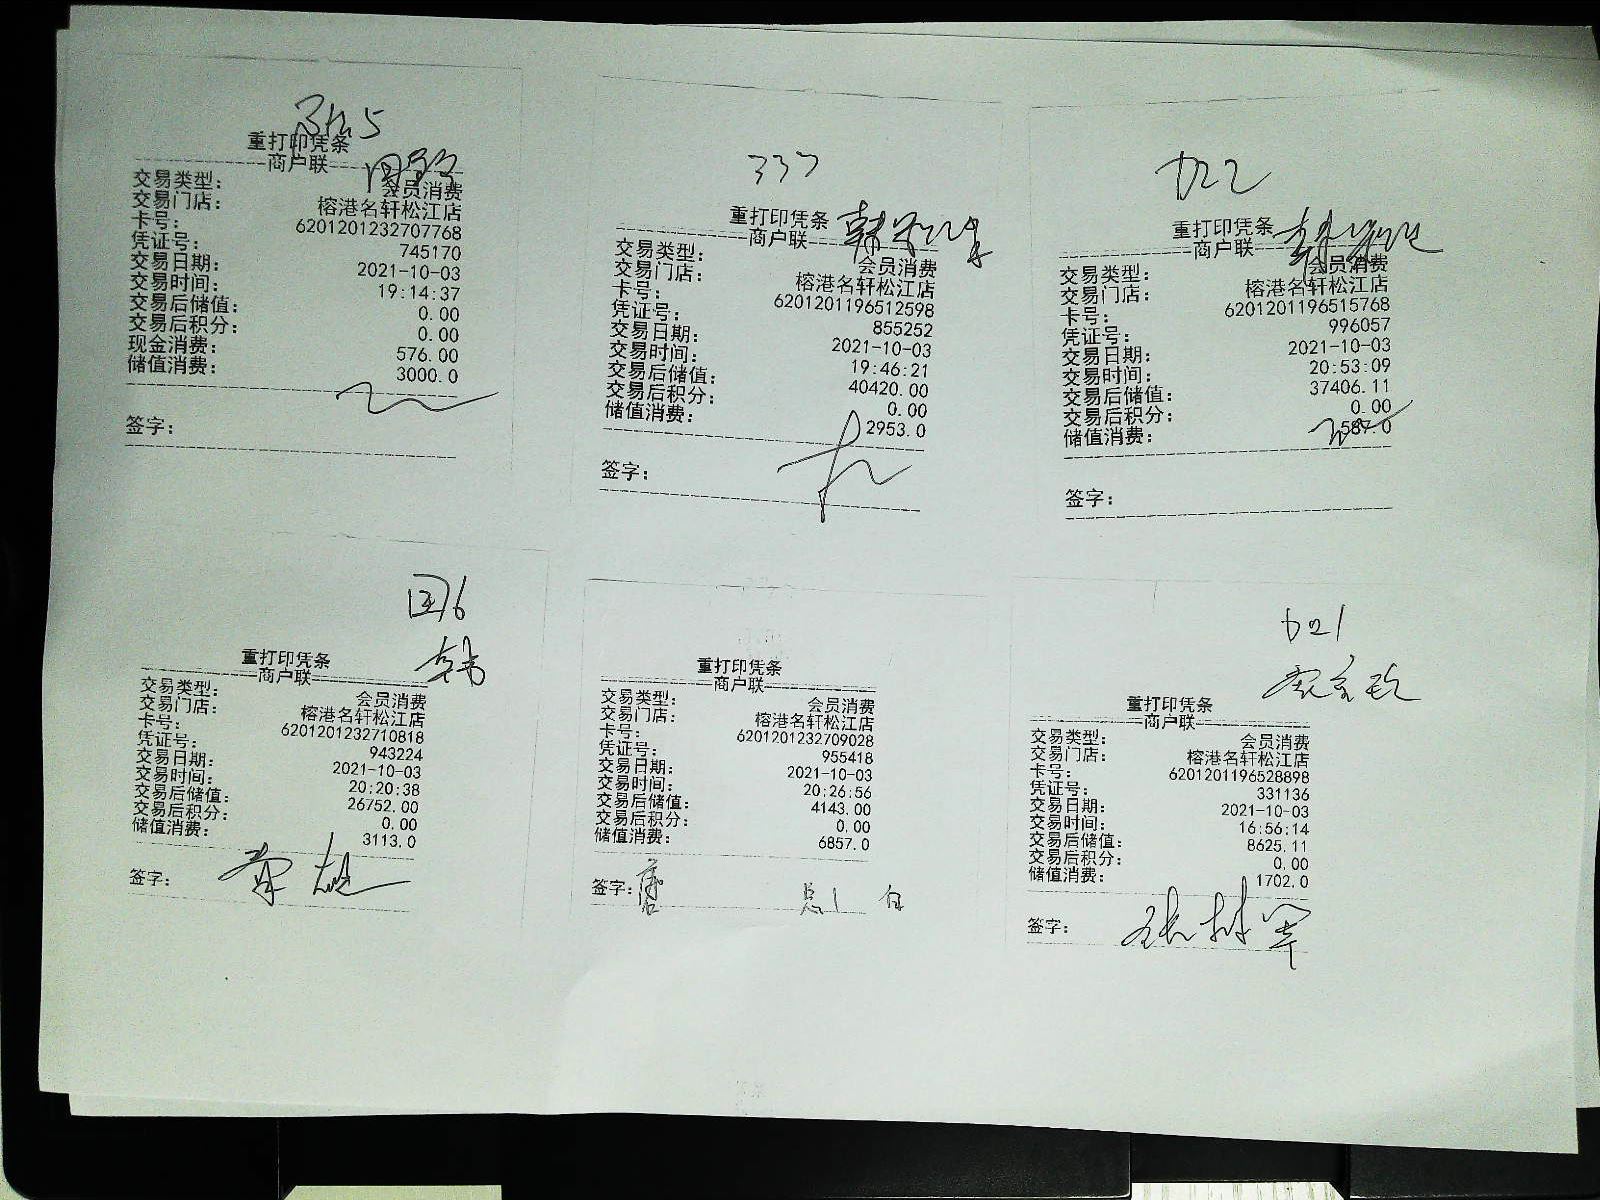 重打印凭条
商户联
交易类型： 会员消费
交易门店： 榕港名轩松江店
卡号： 6201201232707768
凭证号： 745170
交易日期： 2021-10-03
交易时间： 19:14:37
交易后储值： 0.00
交易后积分： 0.00
现金消费： 576.00
储值消费： 3000.0
签字：
337
重打印凭条
商户联
交易类型： 会员消费
交易门店： 榕港名轩松江店
卡号： 6201201196512598
凭证号： 855252
交易日期： 2021-10-03
交易时间： 19:46:21
交易后储值： 40420.00
交易后积分： 0.00
储值消费： 2953.0
签字：
重打印凭条
商户联
交易类型： 会员消费
交易门店： 榕港名轩松江店
卡号： 6201201196515768
凭证号： 996057
交易日期： 2021-10-03
交易时间： 20:53:09
交易后储值： 37406.11
交易后积分： 0.00
储值消费： 587.0
签字：
国16
韩
重打印凭条
商户联
交易类型： 会员消费
交易门店： 榕港名轩松江店
卡号： 6201201232710818
凭证号： 943224
交易日期： 2021-10-03
交易时间： 20:20:38
交易后储值： 26752.00
交易后积分： 0.00
储值消费： 3113.0
签字：
重打印凭条
商户联
交易类型： 会员消费
交易门店： 榕港名轩松江店
卡号： 6201201232709028
凭证号： 955418
交易日期： 2021-10-03
交易时间： 20:26:56
交易后储值： 4143.00
交易后积分： 0.00
储值消费： 6857.0
签字：
重打印凭条
商户联
交易类型： 会员消费
交易门店： 榕港名轩松江店
卡号： 6201201196528898
凭证号： 331136
交易日期： 2021-10-03
交易时间： 16:56:14
交易后储值： 8625.11
交易后积分： 0.00
储值消费： 1702.0
签字： 张林军